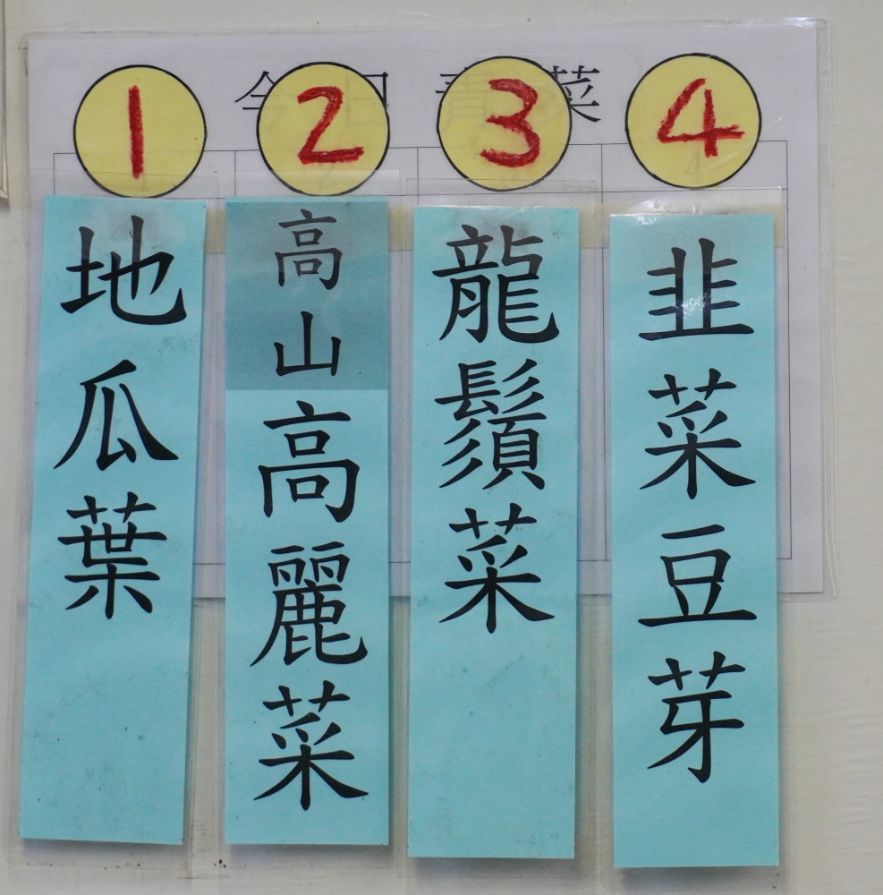 今日青菜
1
地瓜葉
2
高山高麗菜
3
龍鬚菜
4
韭菜豆芽